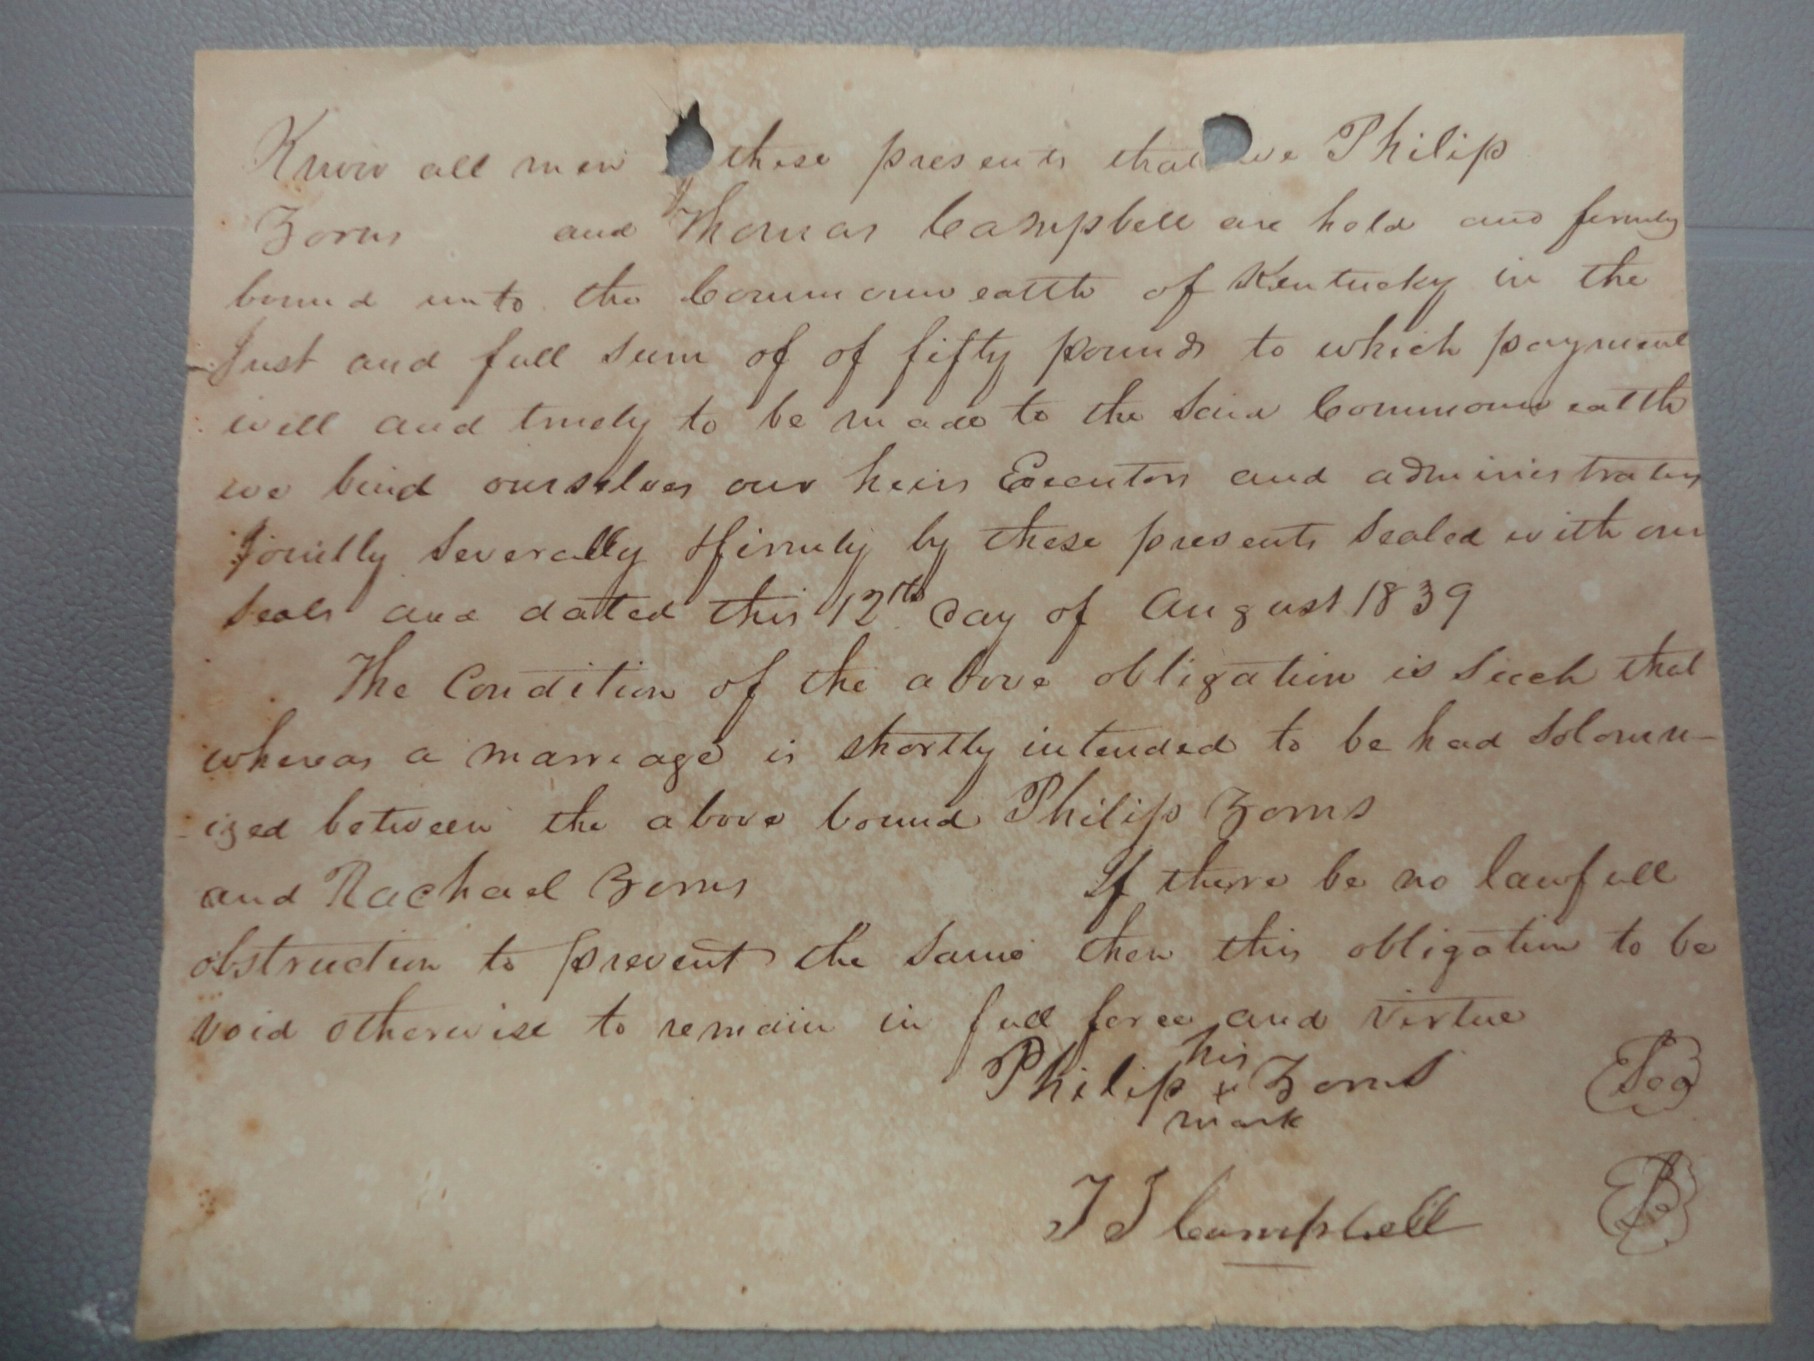 Know all men these presents that we Philip
Zorns and Thomas Campbell are held and firmly
bound unto the Commonwealth of Kentucky in the
Just and full sum of of fifty pounds to which payment
will and truely to be made to the Said Commonwealth
we bind ourselves our heirs Executors and administrators
Jointly Severally & firmly by these presents Sealed with our
Seals and dated this 12th day of August 1839
The Condition of the above obligation is Such that
whereas a marriage is shortly intended to be had Solomn-
-ized between the above bound Philip Zorns
and Rachael Zorns If there be no lawfull
obstruction to prevent the Same then this obligation to be
void otherwise to remain in full force and Virtue
his
Philip x Zorns Seal
mark
T J Campbell